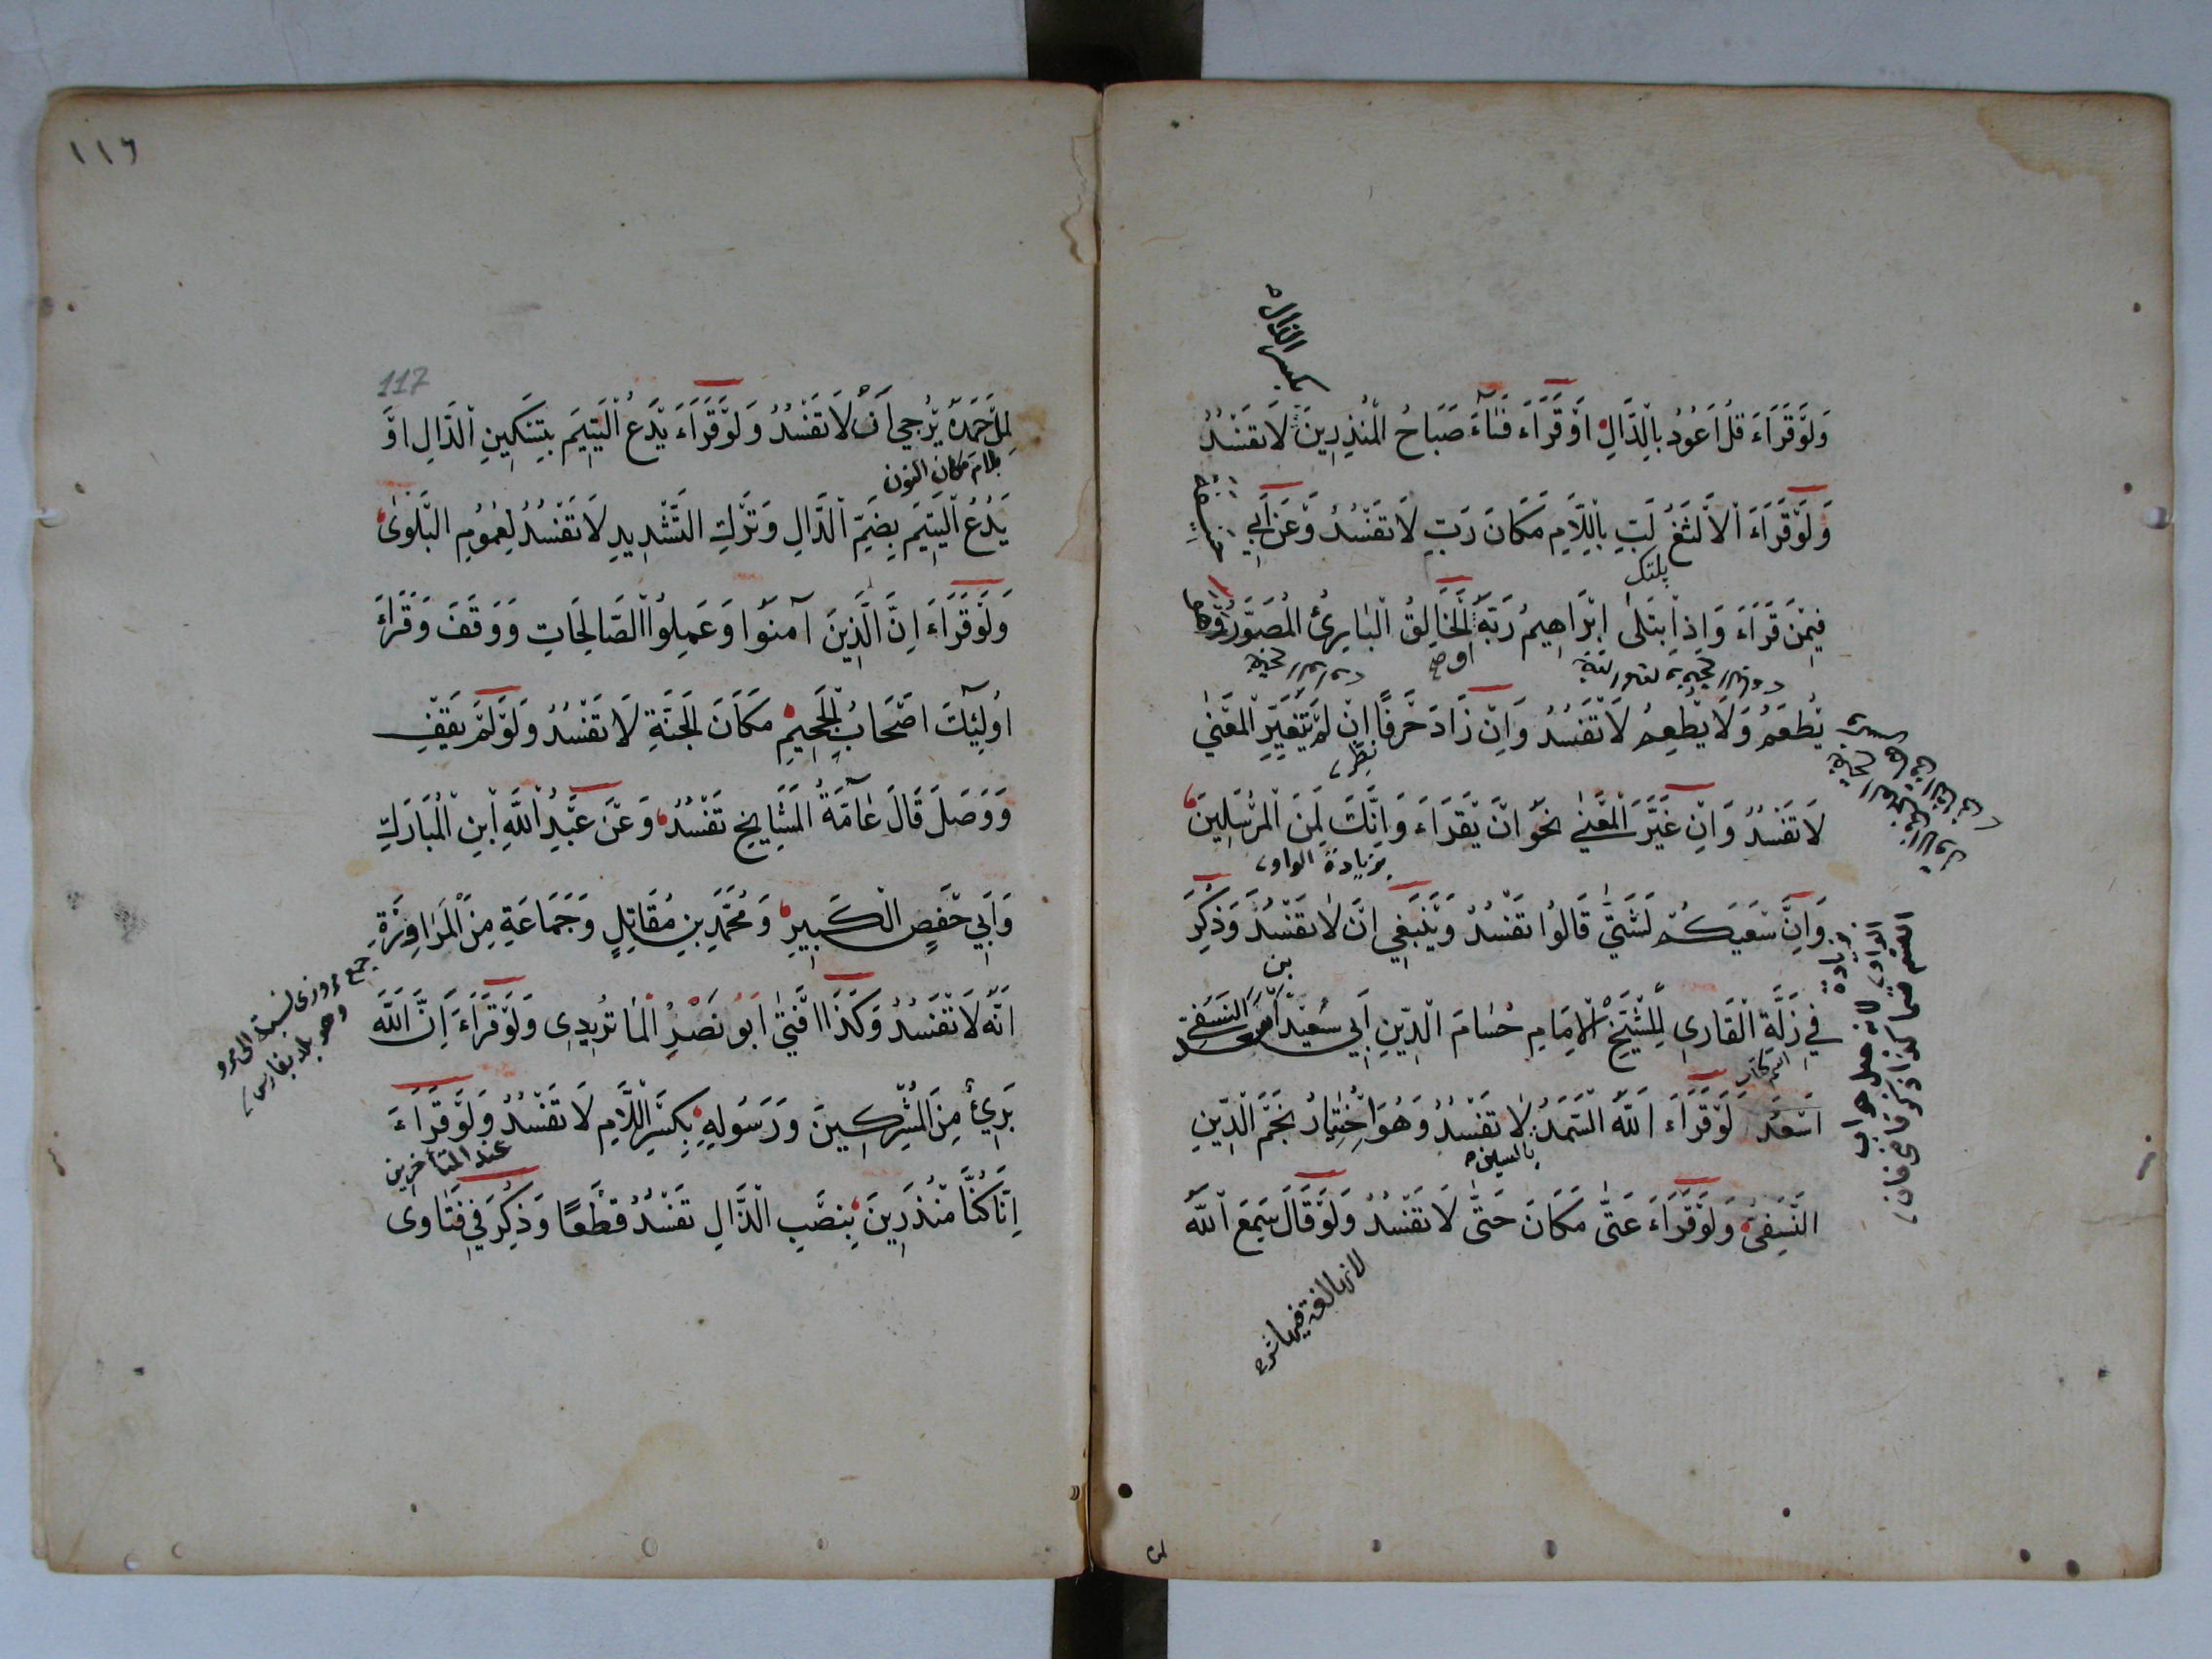 بكسر الذال
وَلَوْ قَرَاَءَ قُلْ اَعُودُ بِالدَّالِ اَوْ قَرَاَءَ فَسَاۤءَ صَبَاحُ الْمُنْذِرِينَ لَا تَفْسُدُ
وَلَوْ قَرَاَءَ الْاَلْثَغُ لَبِّ بِاللَّامِ مَكَانَ رَبِّ لَا تَفْسُدُ وَعَنْ اَبِي
پلتك
فِيمَنْ قَرَاَءَ وَاِذِ ابْتَلىٰ اِبْرَاهِيمُ رَبَّهُ الْخَالِقُ الْبَارِئُ الْمُصَوَّرُ
يُطْعَمُ وَلَا يُطْعِمُ لَا تَفْسُدُ وَاِنْ زَادَ حَرْفًا اِنْ لَمْ يَتَغَيَّرِ الْمَعْنىٰ
لَا تَفْسُدُ وَاِنْ غَيَّرَ الْمَعْنىٰ نَحْوُ اَنْ يَقْرَاَءَ وَاِنَّكَ لَمِنَ الْمُرْسَلِينَ
بزيادة الواو
وَاِنَّ سَعْيَكُمْ لَشَتّٰى قَالُوا تَفْسُدُ وَيَنْبَغِي اَنْ لَا تَفْسُدَ وَذُكِرَ
بزيادة
الواو لانه جعل جواب
القسم قسما كذا ذكر قاضى خان
فِي زَلَّةِ الْقَارِى لِلشَّيْخِ الْاِمَامِ حُسَامِ الْدِّينِ اَبِي سَعِيدْ بن النَسَفِي
اَسْعَدَ لَوْ قَرَاَءَ اَللّٰهُ الْسَّمَدُ لَا تَفْسُدُ وَهُوَ اخْتِيَارُ نَجْمِ الْدِّينِ
بالسين
النَّسَفِىِّ وَلَوْ قَرَاَءَ عَتّٰى مَكَانَ حَتّٰى لَا تَفْسُدُ وَلَوْ قَالَ سَمِعَ اللّٰهُ
لانها لغة فيها شرح
١١٦
117
لِمَلْ حَمِدَهُ يُرْجىٰ اَنْ لَا تَفْسُدُ وَلَوْ قَرَاَءَ يَدْعُ الْيَتِيمَ بِتَسْكِينِ الْدَّالِ اَوْ
بلام مكان النون
يَدُعُ الْيَتِيمَ بِضَمِّ الْدَّالِ وَتَرْكِ التَّشْدِيدِ لَا تَفْسُدُ لِعُمُومِ الْبَلْوٰى
وَلَوْ قَرَاَءَ اِنَّ الَّذِينَ آمَنُوا وَعَمِلُوا الْصَّالِحَاتِ وَوَقَفَ وَقَرَاَءَ
اُولٰۤئِكَ اَصْحَابُ الْجَحِيمِ مَكَانَ الْجَنَّةِ لَا تَفْسُدُ وَلَوْ لَمْ يَقِفْ
وَوَصَلَ قَالَ عَامَّةُ الْمَشَايِخِ تَفْسُدُ وَعَنْ عَبْدِ اللّٰهِ ابْنِ الْمُبَارَكِ
وَاَبِي حَفْصٍ الْكَبِيرِ وَمُحَمَّدِ بْنِ مُقَاتِلٍ وَجَمَاعَةٍ مِنَ الْمَرَاوِزَةِ
جمع مروزى نسبة الى مرو
وهو بلد بفارس
اَنَّهُ لَا تَفْسُدُ وَكَذَا اَفْتىٰ اَبُو نَصْرٍ الْمَاتُرِيدِى وَلَوْ قَرَاَءَ اِنَّ اللّٰهَ
بَرِىٌٔ مِنَ الْمُشْرِكِينَ وَرَسُولِهِ بِكَسْرِ اللَّامِ لَا تَفْسُدُ وَلَوْ قَرَاَءَ
عند المتأخرين
اِنَّا كُنَّا مُنْذَرِينَ بِنَصْبِ الْذَّالِ تَفْسُدُ قَطْعًا وَذُكِرَ فِي فَتَاوٰى